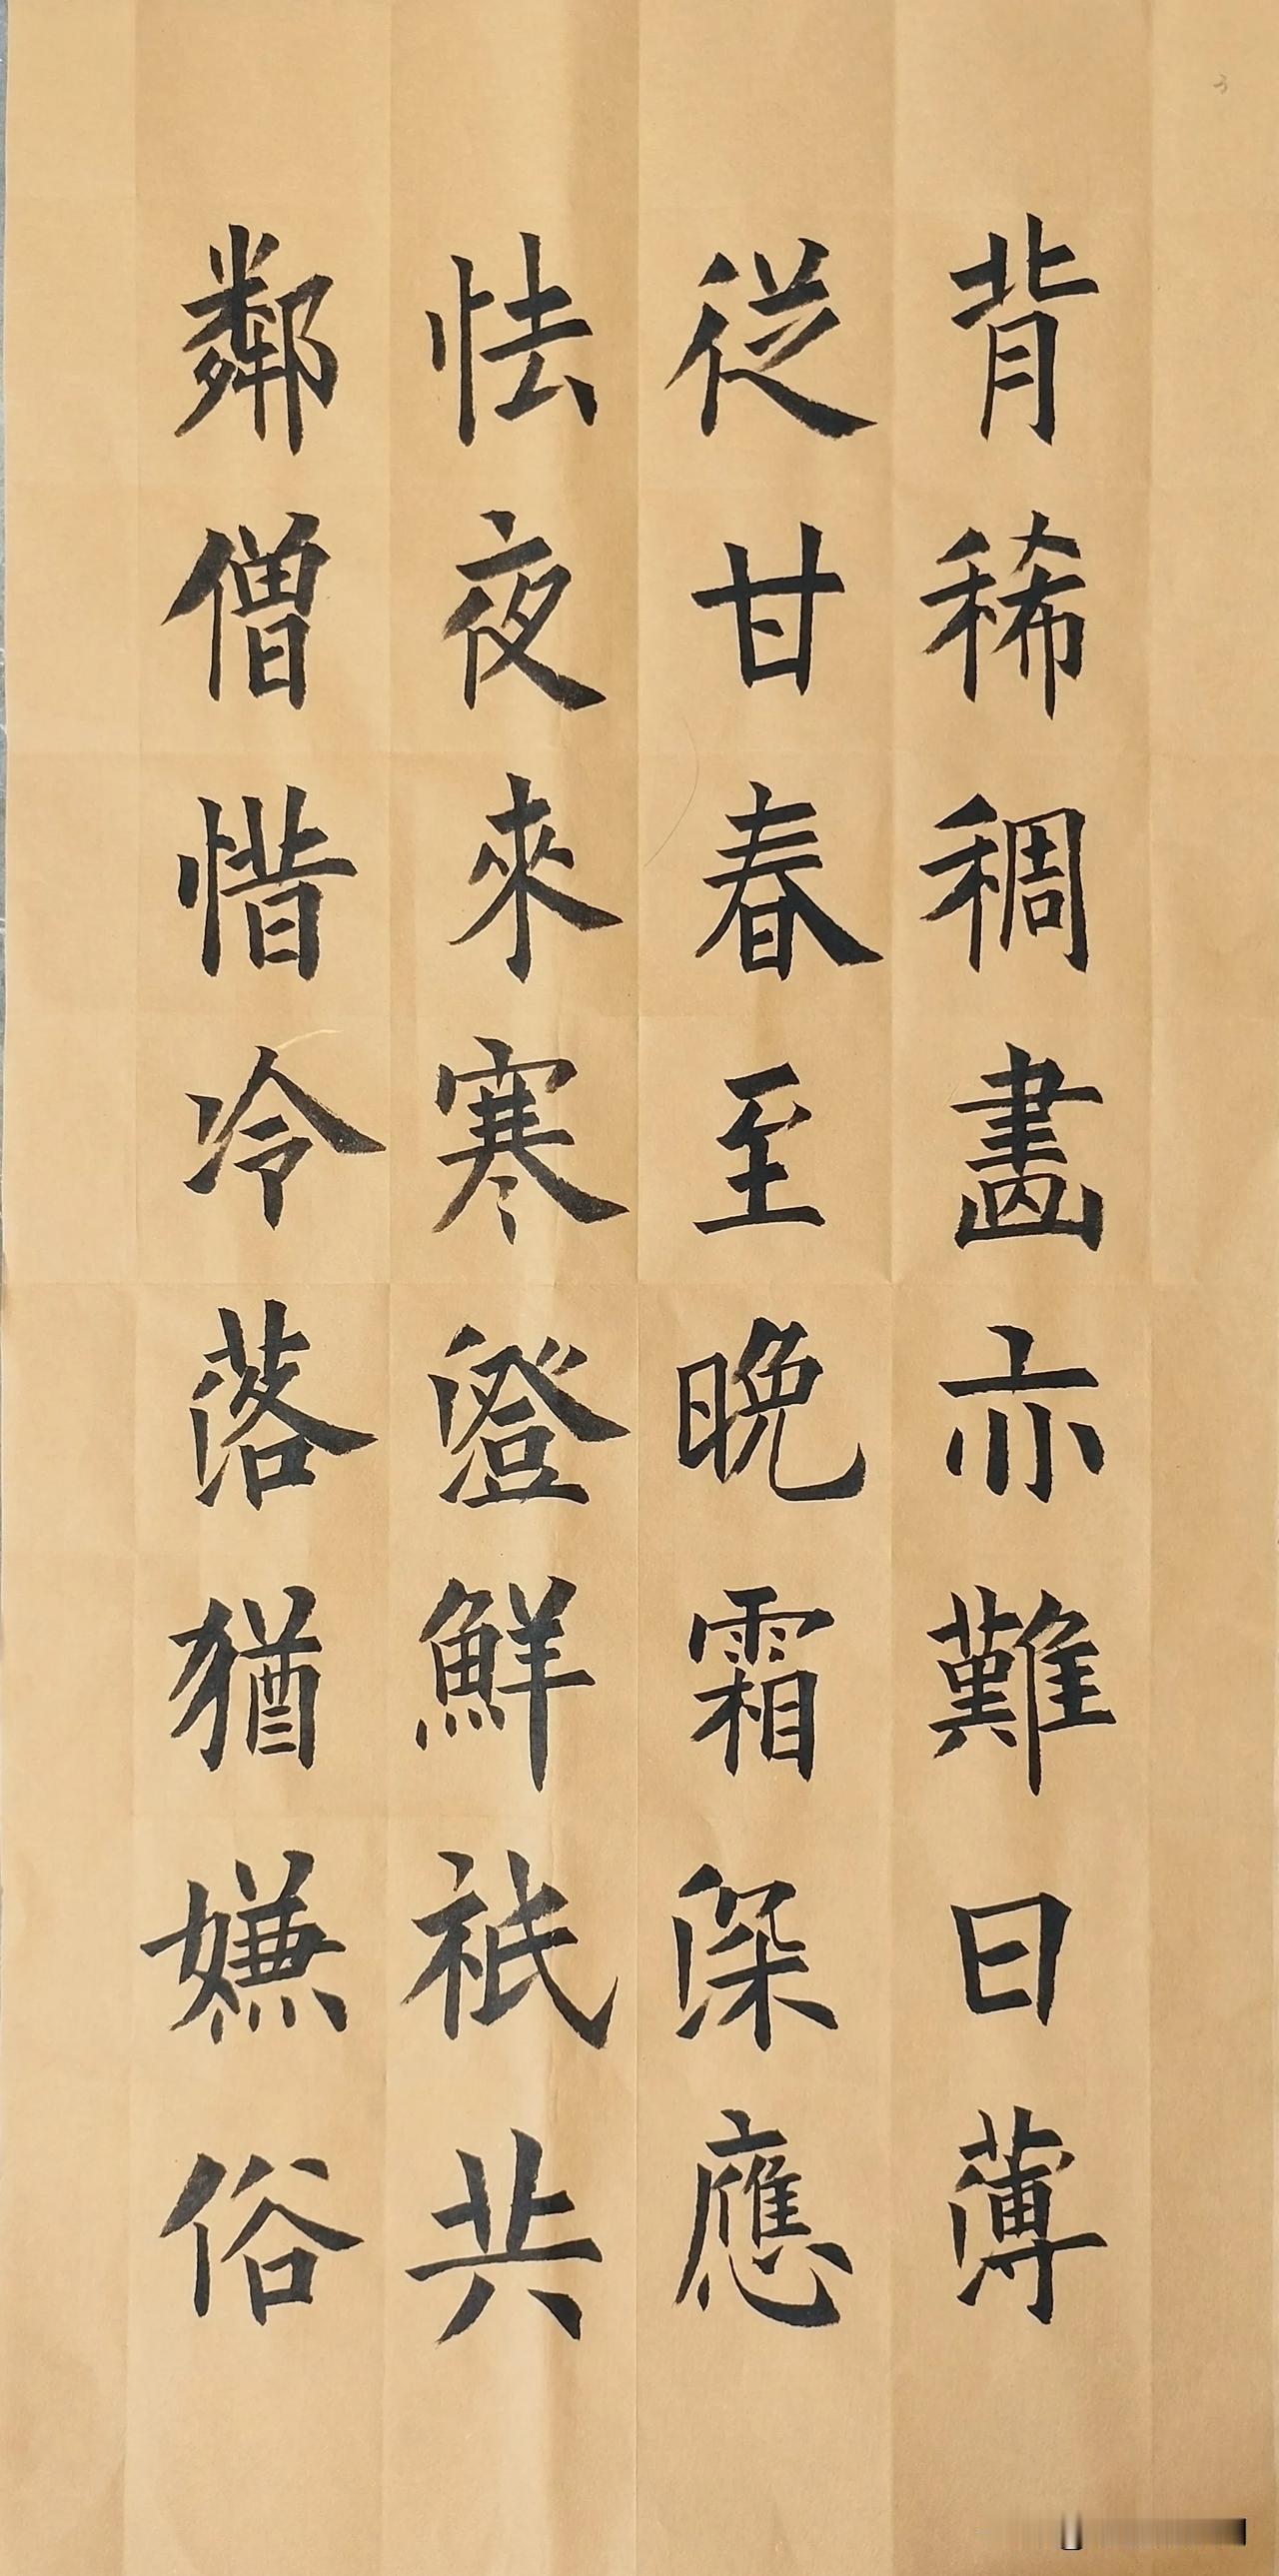 背稀稠畵亦難日薄
從甘春至晚霜深應
怯夜來寒澄鮮祇共
鄰僧惜冷落猶嫌俗